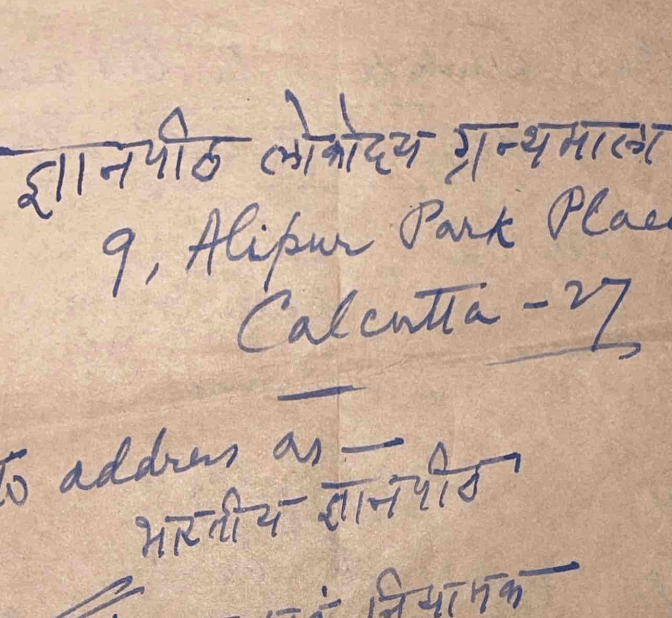 ज्ञानपीठ लोकोदय ग्रन्थमाला
9, Alipur Park Place
Calcutta - 27
To address as —
भारतीय ज्ञानपीठ
नियामक